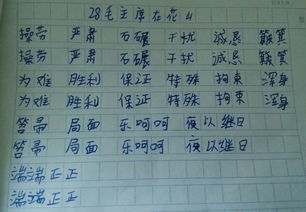 28毛主席在花山
操劳 严肃 石碾 干扰 诚恳 簸箕
操劳 严肃 石碾 干扰 诚恳 簸箕
为难 胜利 保证 特殊 拘束 浑身
为难 胜利 保证 特殊 拘束 浑身
笤帚 局面 乐呵呵 夜以继日
笤帚 局面 乐呵呵 夜以继日
端端正正
端端正正